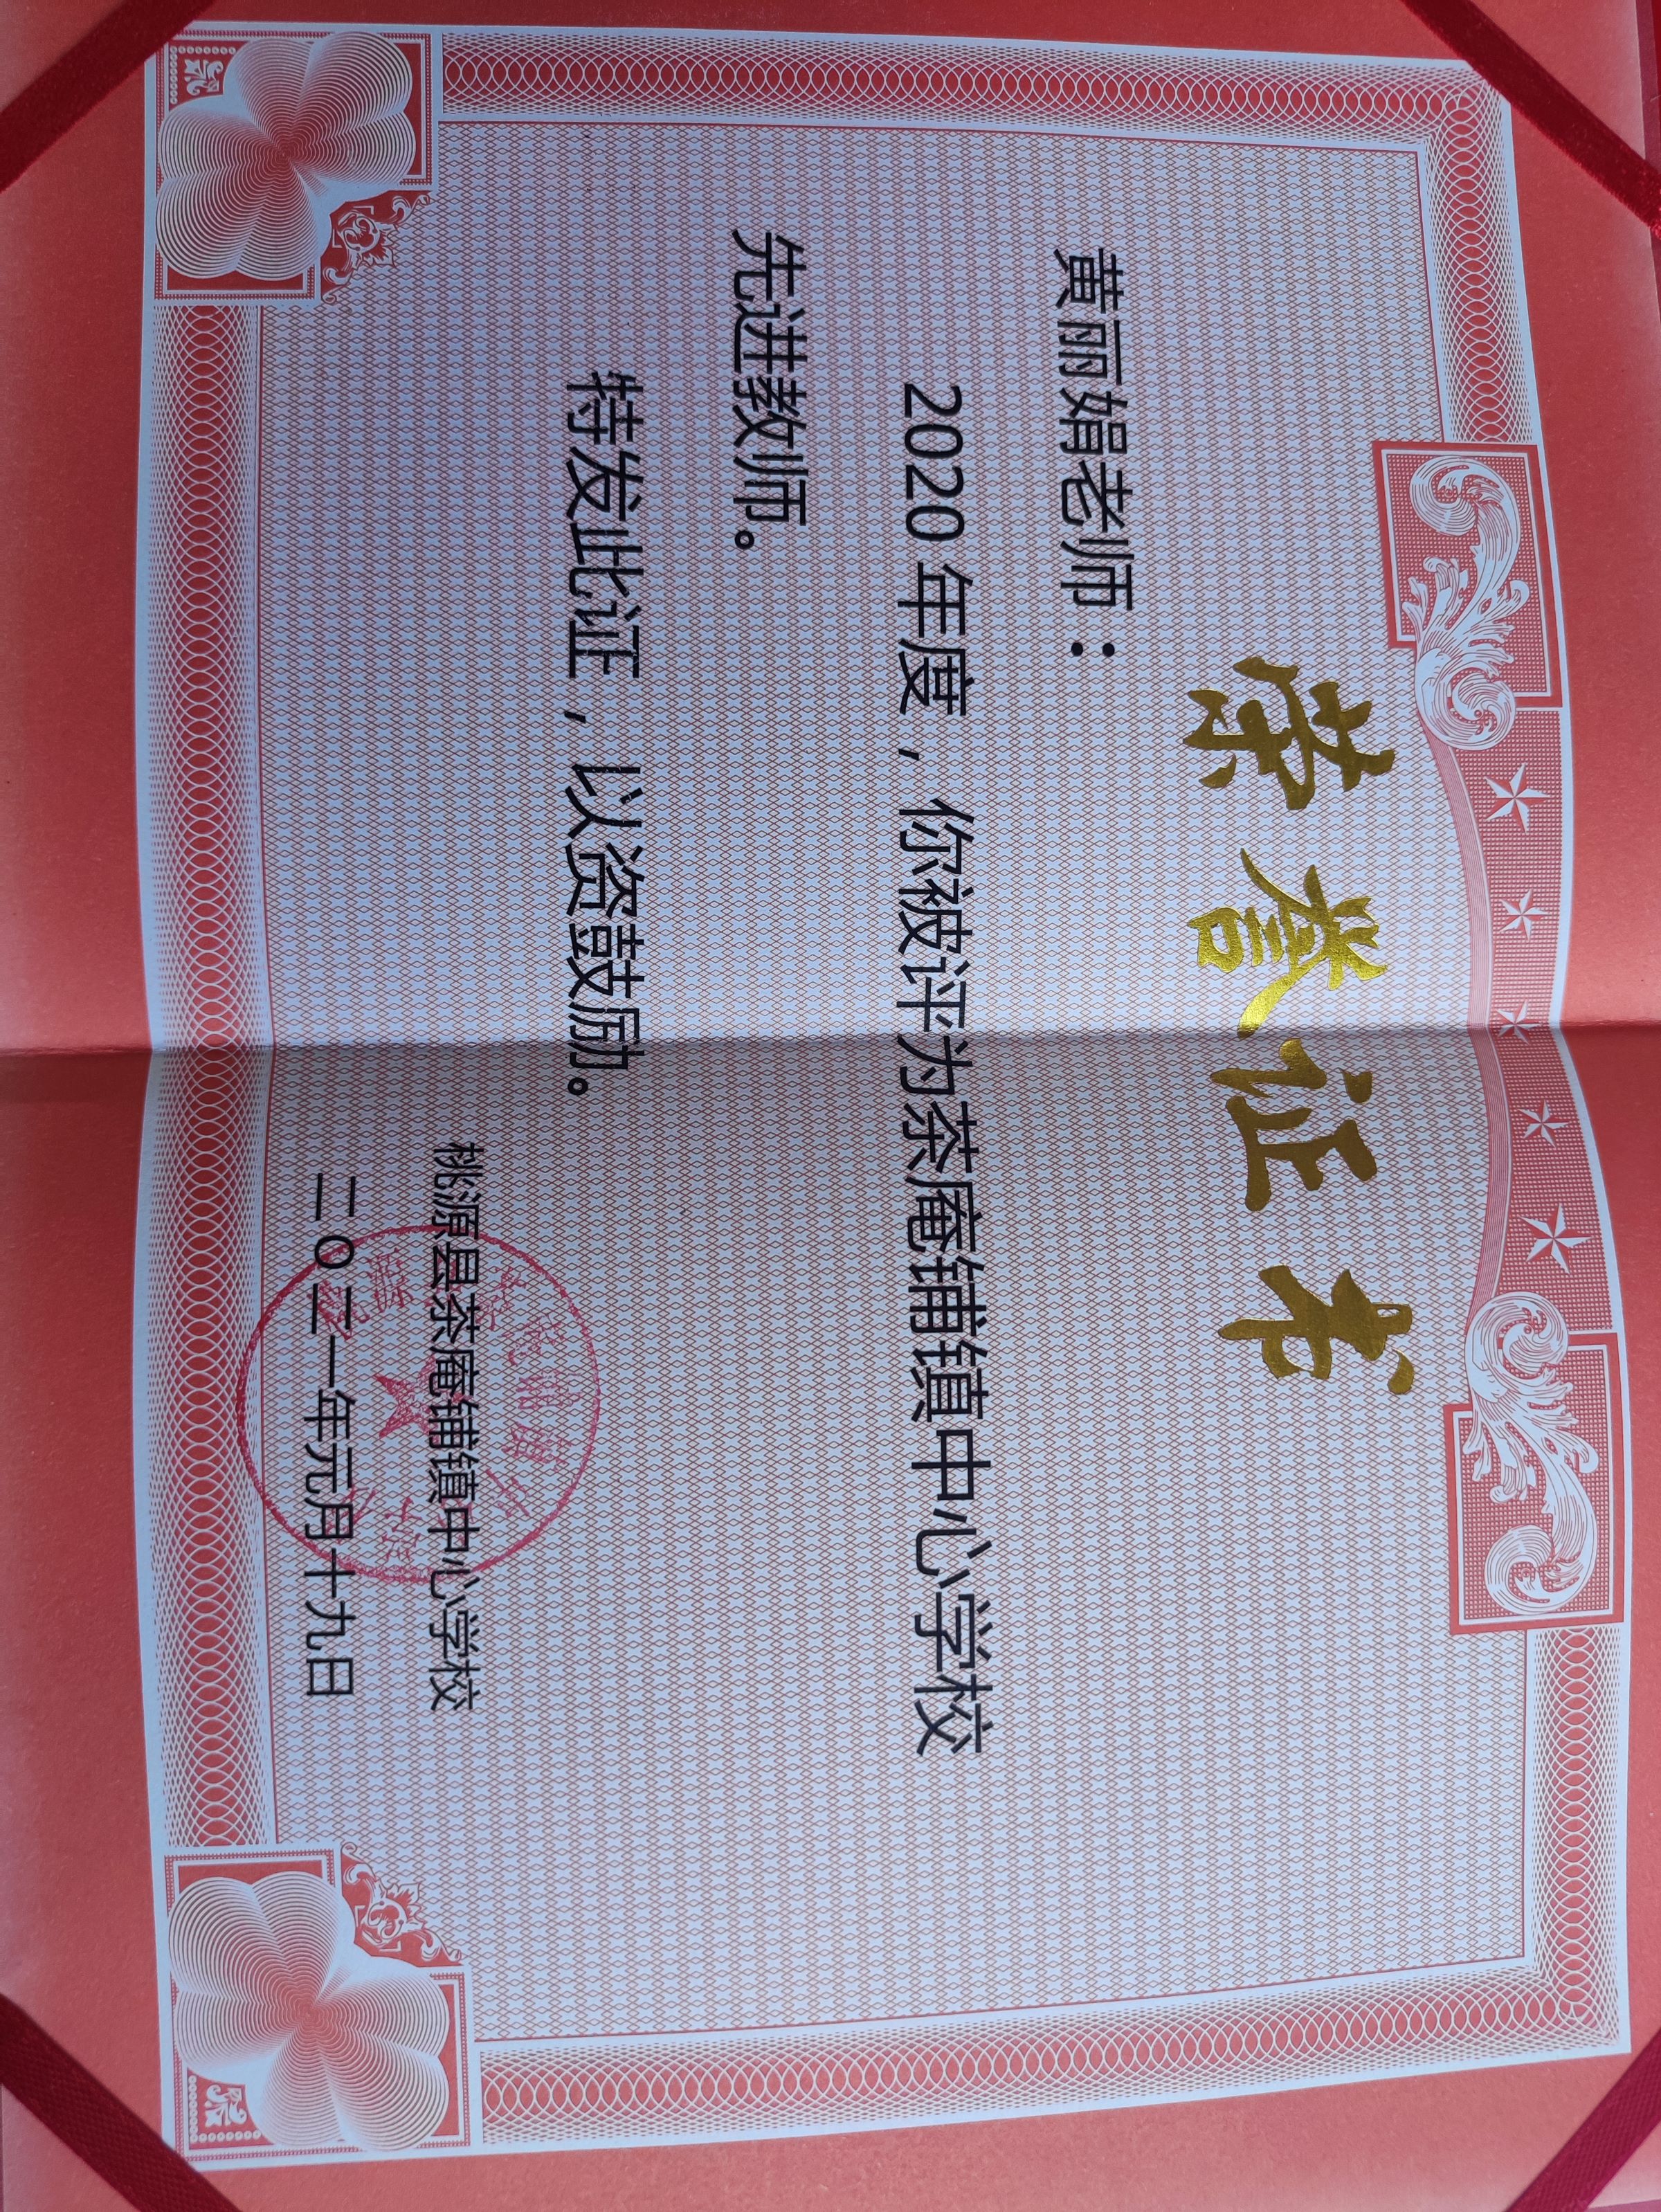 荣誉证书
黄丽娟老师：
2020年度，你被评为茶庵铺镇中心学校
先进教师。
特发此证，以资鼓励。
桃源县茶庵铺镇中心学校
二〇二一年元月十九日